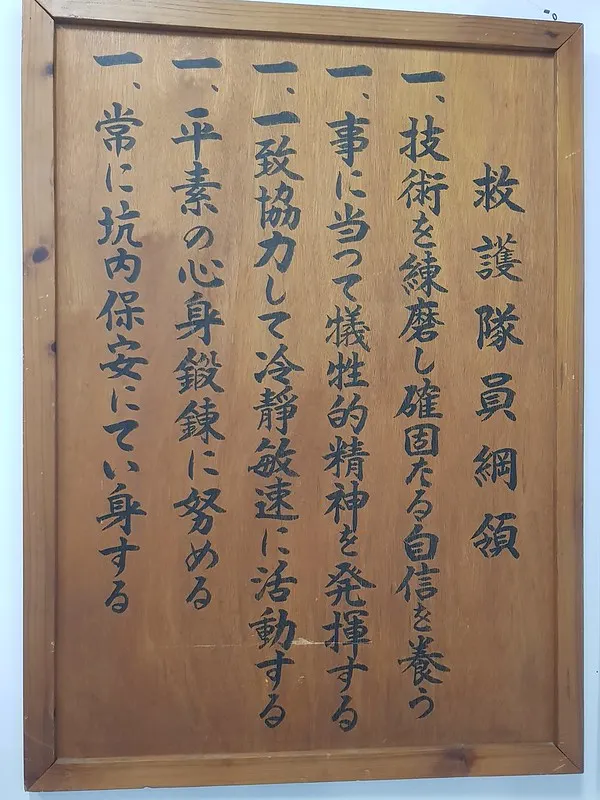 救護隊員綱領
一、技術を練磨し確固たる自信を養う
一、事に当って犠牲的精神を発揮する
一、一致協力して冷静敏速に活動する
一、平素の心身鍛錬に努める
一、常に坑内保安にてい身する